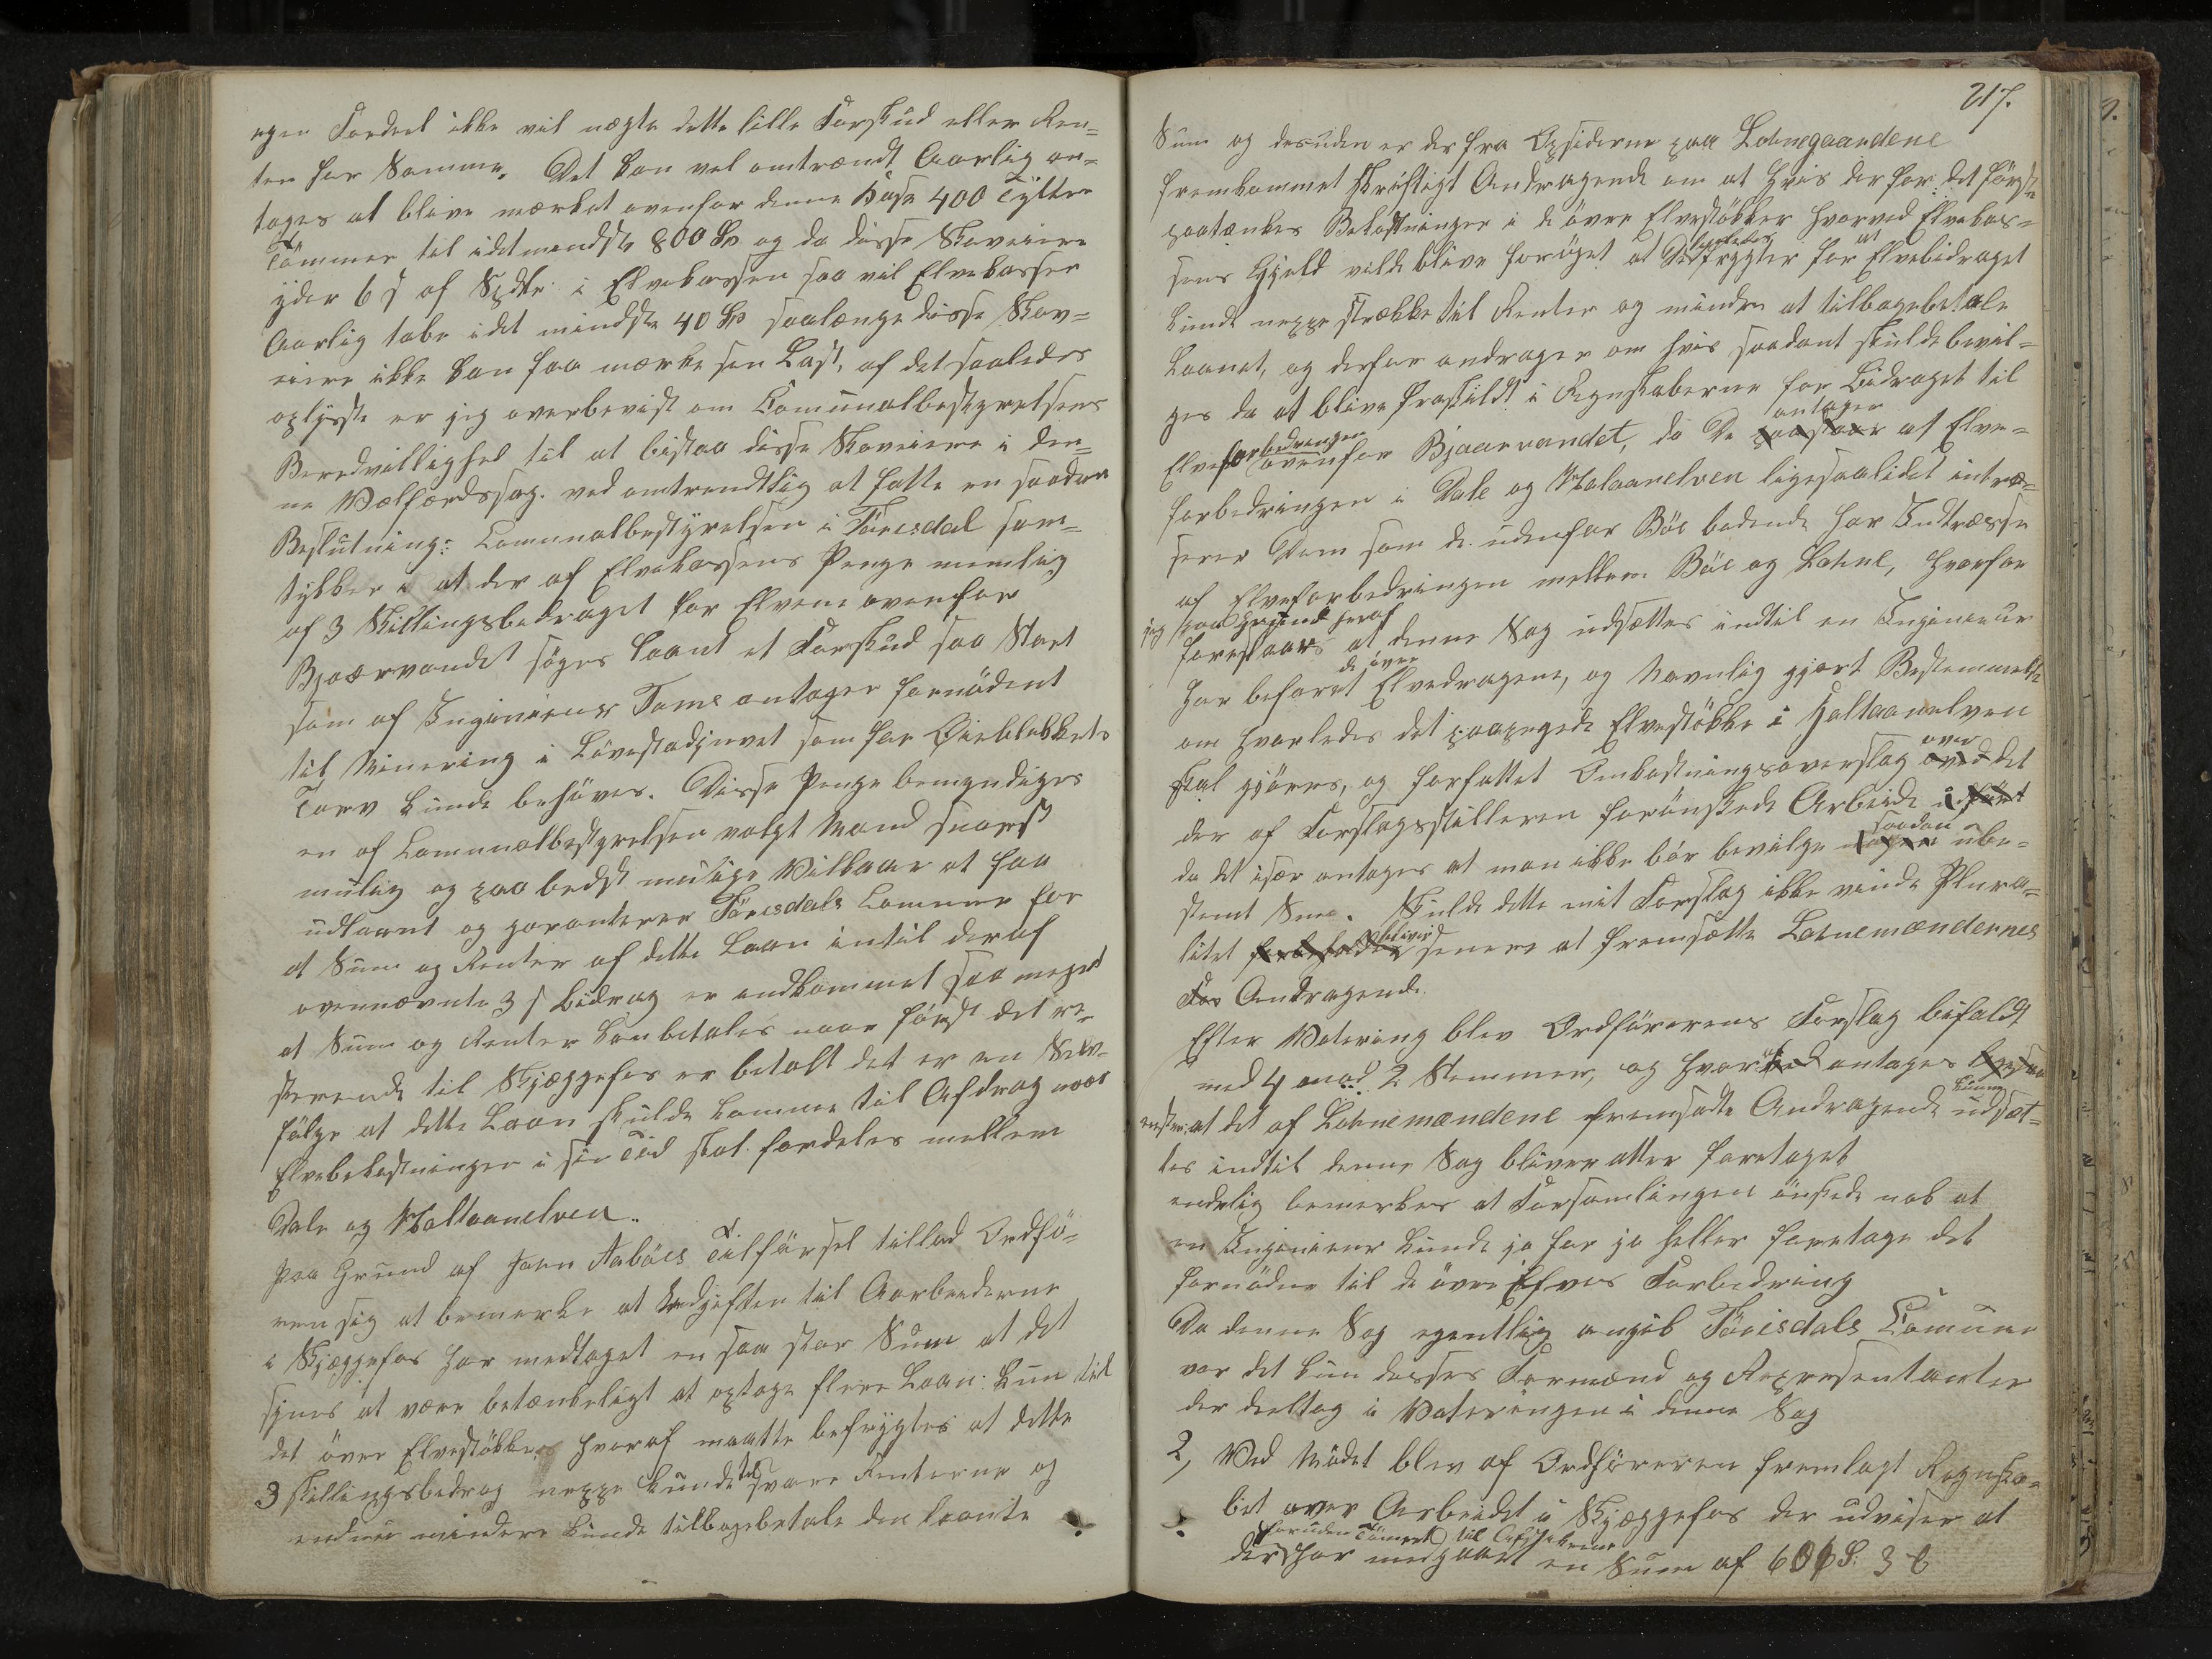 egen Fordeel ikke vil negte dette lille Forskud eller Ren=
ten for Samme. Det kan vel omtrændt Aarlig an=
tages at blive mærket ovenfor denne 400 Tylter
Tömmer til idetmindste 800 Spd og da disse Skoveiere
yder 6 s af Spdlr i Elvekassen saa vil Elvekassen
Aarlig tabe idet mindste 40 Spd saalænge disse Skov=
eiere ikke kan faa mærke sin Last, af det saaledes
oplyste er jeg overbevist om Comunalbestyrelsens
Beredvillighed til at bistaa disse Skoveiere i den=
ne Velfærdssag. ved omtrendtlig at fatte en saadan
Beslutning: Comunalbestyrelsen i Törisdal sam=
tykker i at der af Elvekassens Penge nemlig
af 3 Skillingsbedraget for Elvene ovenfor
Bjaarvandet söges laant et Forskud saa Stort
som af Ingenieur Tome antager fornödent
til Minering i Lövestadjuvet som for Öieblikkets
Tarv kunde behöves. Disse Penge bemyndiges
en af Comunalbestyrelsen valgt Mand snarest
mulig og paa bedst mulige Vilkaar at faa
udlaant og garanterer Törisdals Comune for
at Sum og Renter af dette Laan intil deraf
ovennævnte 3 s Bidrag er indkommet saa meget
at Sum og Renter kan betales naar först det re=
sterende til Skjæggefos er betalt det er en Selv=
fölge at dette Laan skulde komme til Afdrag naar
Elvebekostninger i sin Tid skal fordeles mellem
Dale og Haltaanelven.
Paa Grund af Jørn Aaböes Tilförsel tillod Ordfö=
ren sig at bemerke at Udgiften til Aarbeiderne
i Skjæggefos har medtaget en saa stor Sum at det
synes at være betænkeligt at optage flere Laan kun til
det övre Elvestökke, hvoraf maatte befrygtes at dette
3 skillingsbedrag neppe kunde tilsvare Renterne og
endnu mindre kunde tilbagebetale den laante
217.
Sum og desuden er der fra Opsiderne paa Lohnegaardene
fremkommet skriftligt Andragende om at hvis der for det förste
paatænkes Bekostninger i de övre Elvestökker hvorved Elvekas=
sens Gjeld vilde blive foröget at De ligeledes frygter for at Elvebidraget
kunde neppe strække til Renter og mindre at tilbagebetale
Laanet, og derfor andrager om hvis saadant skulde bevil=
ges da at blive fraskildt i Regnskaberne for Bidraget til
Elveforbedringen ovenfor Bjaarvandet, da De antager at Elve=
forbedringen i Dale og Haltaanelven ligesaalidet intræs=
serer Dem som de udenfor Böe boende har Indtræsse
af Elveforbedringen mellem Böe og Lohne, hvorfor
jeg paa Grund heraf
foreslaar at denne Sag udsættes indtil en Ingenieur
har befaret de övre Elvedragene, og Navnlig gjort Bestemmelse
om hvorledes det paapegede Elvestökke i Haltaanelven
skal gjöres, og forfattet Omkostningsoverslag over det
der af Forslagsstilleren forönskede Arbeide
da det især antages at man ikke bör bevilge saadan ube=
stemt Sum. Skulde dette mit Forslag ikke vinde Plura=
litet senere at fremsætte Lohnemændernes
Andragende
Efter Votering blev Ordförerens Forslag bifaldt
med 4 mod 2 Stemmer, og antages
at det af Lohnemændene fremsadte Andragende kunne udsæt=
tes indtil denne Sag bliver atter foretaget
endelig bemerkes at Forsamlingen önskede nok at
en Ingenieur kunde jo för jo heller foretage det
fornödne til de övre Elves Forbedring
Da denne Sag egentlig angik Törisdals Comune
var det kun dessers Formænd og Representanter
der deeltog i Voteringen i denne Sag
2, Ved Mödet blev af Ordföreren fremlagt Regnska=
bet over Arbeidet i Skjæggefos der udviser at
der foruden Tömmer til har medgaaet en Sum af